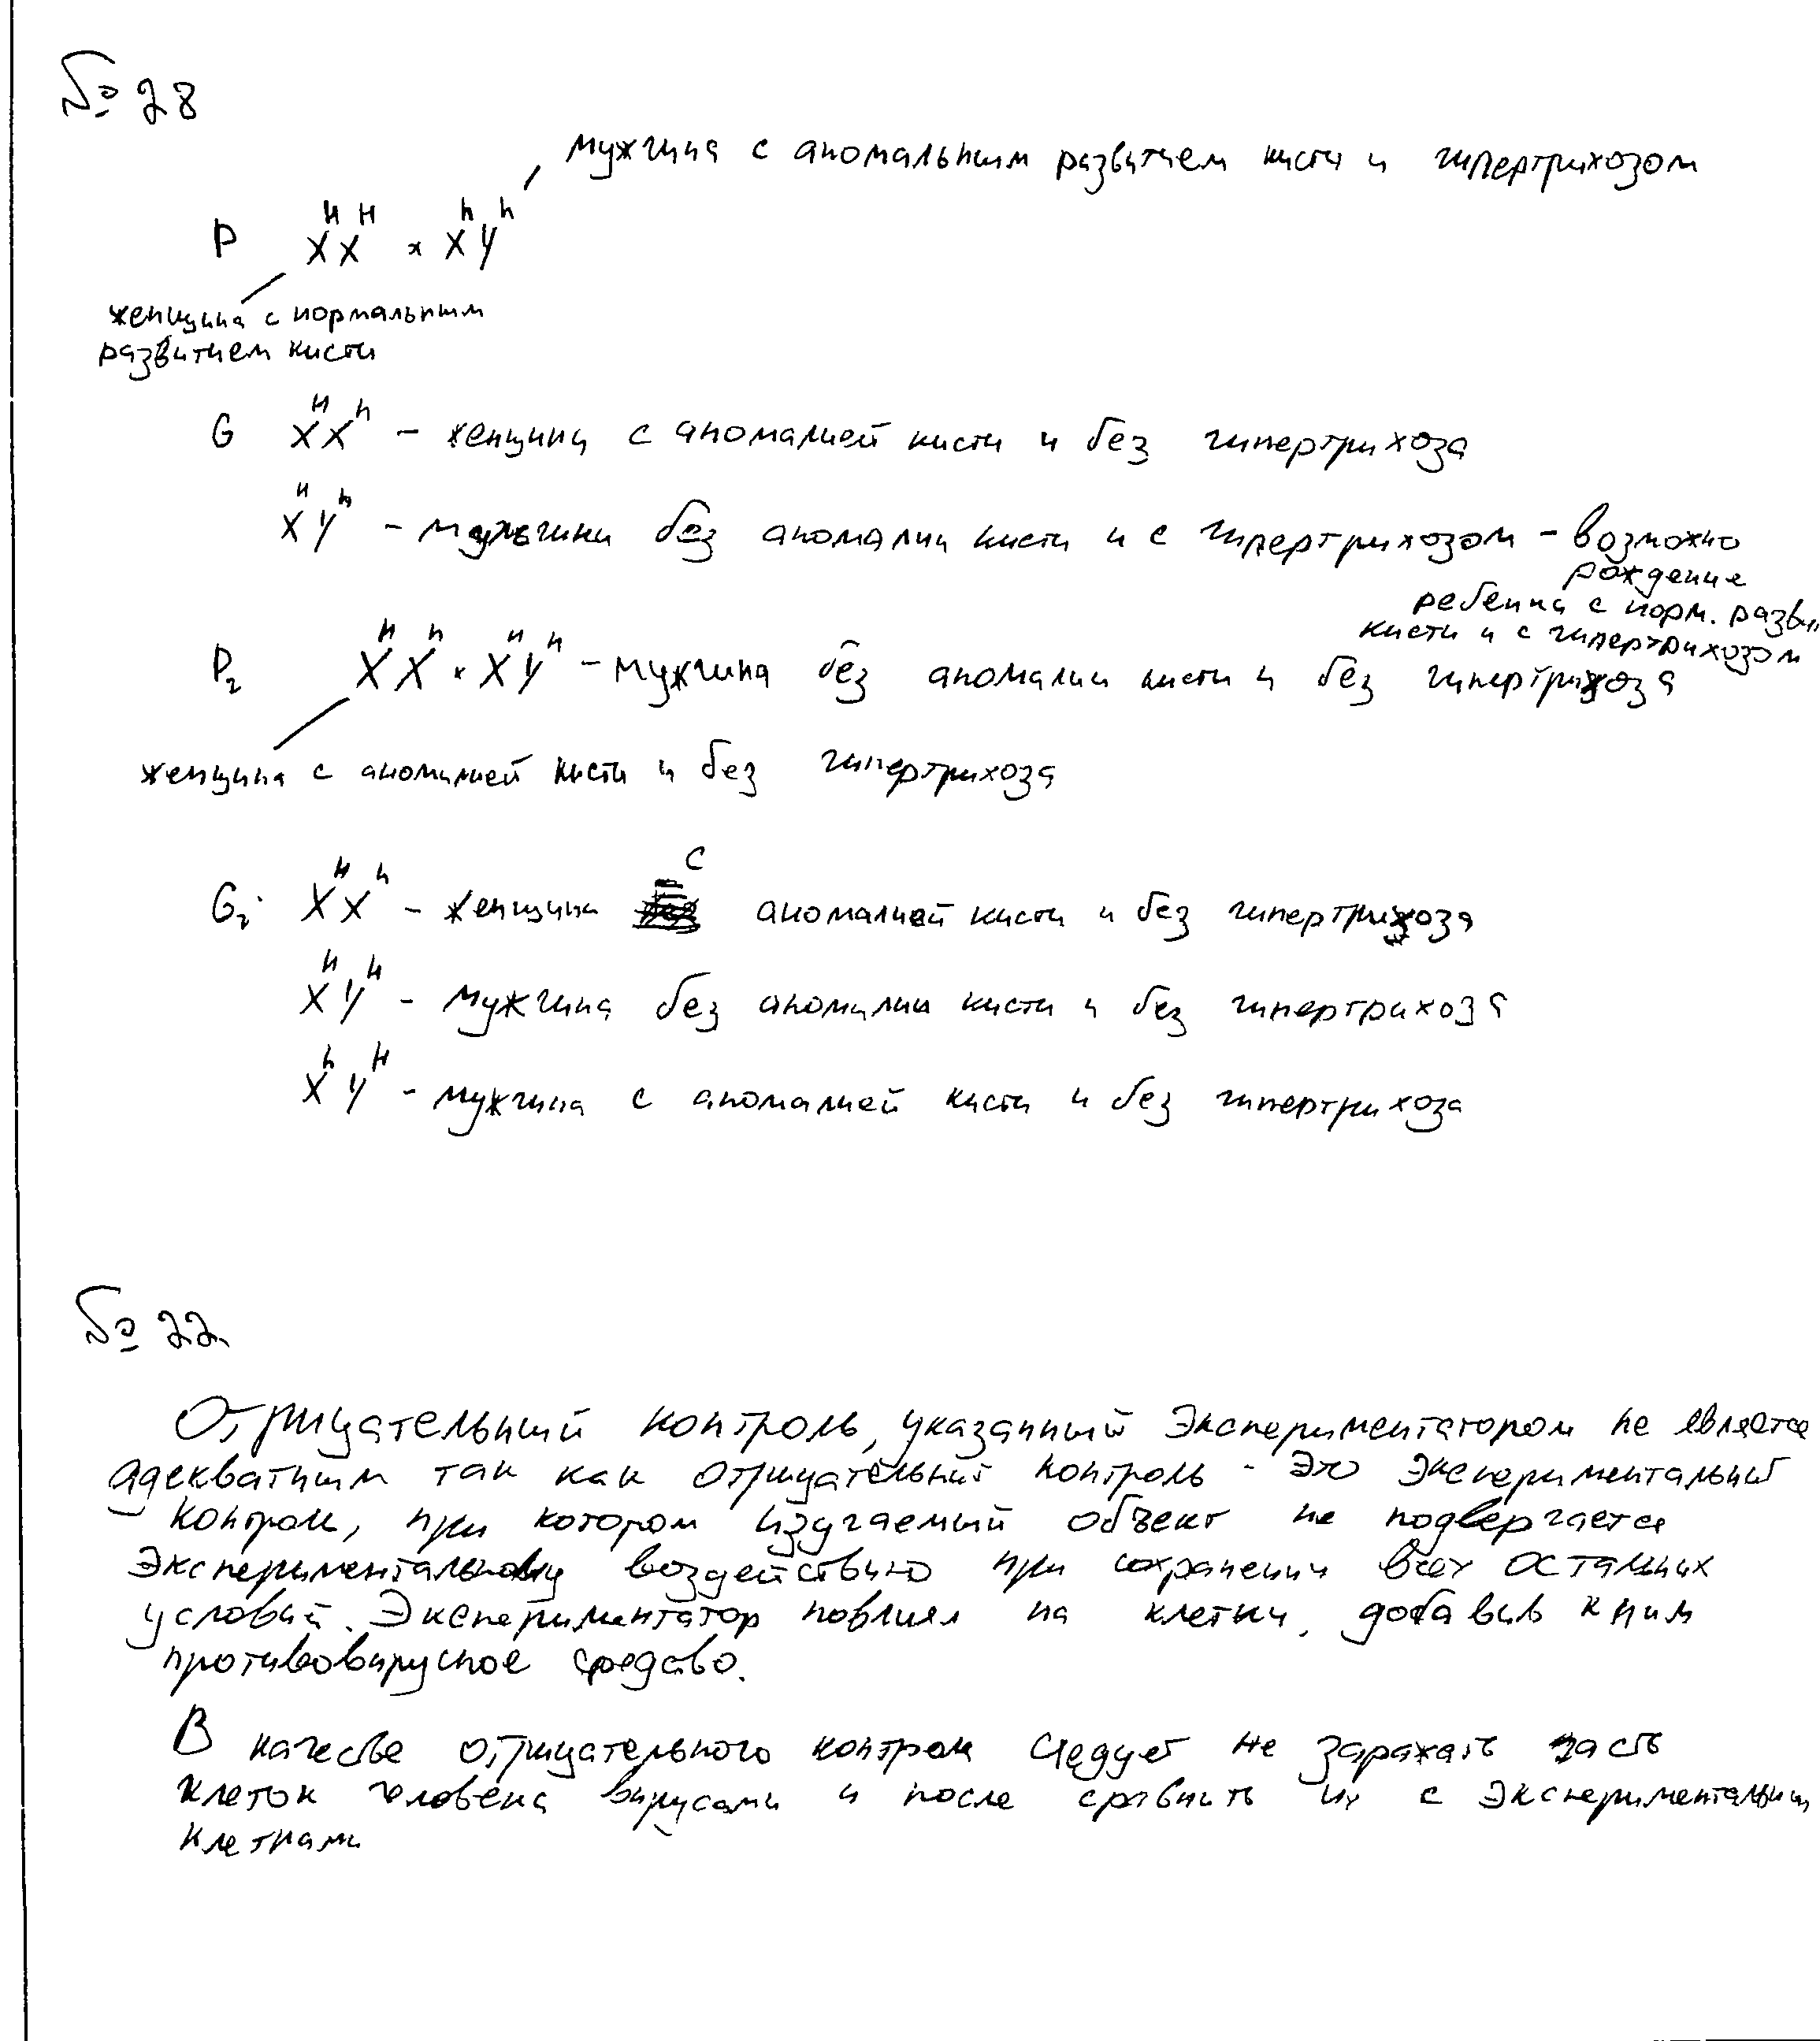 № 28
мужчина с аномальным развитием кисти и гипертрихозом
P X^H X^H × X^h Y^h
женщина с нормальным
развитием кисти
G X^H X^h – женщины с аномалией кисти и без гипертрихоза
X^H Y^h – мужчины без аномалии кисти и с гипертрихозом – возможно
рождение
ребенка с норм. разви
кисти и с гипертрихозом
P₂ X^H X^h × X^H Y^H – мужчина без аномалии кисти и без гипертрихоза
женщина с аномалией кисти и без гипертрихоза
G₂ X^H X^h – женщины с аномалией кисти и без гипертрихоза
X^H Y^H – мужчина без аномалии кисти и без гипертрихоза
X^h Y^H – мужчина с аномалией кисти и без гипертрихоза
№ 22
Отрицательный контроль, указанный экспериментатором не является
адекватным так как отрицательный контроль – это экспериментальный
контроль, при котором изучаемый объект не подвергается
экспериментальному воздействию при сохранении всех остальных
условий. Экспериментатор повлиял на клетки, добавив к ним
противовирусное средство.
В качестве отрицательного контроля следует не заражать часть
клеток человека вирусами и после сравнить их с экспериментальными
клетками